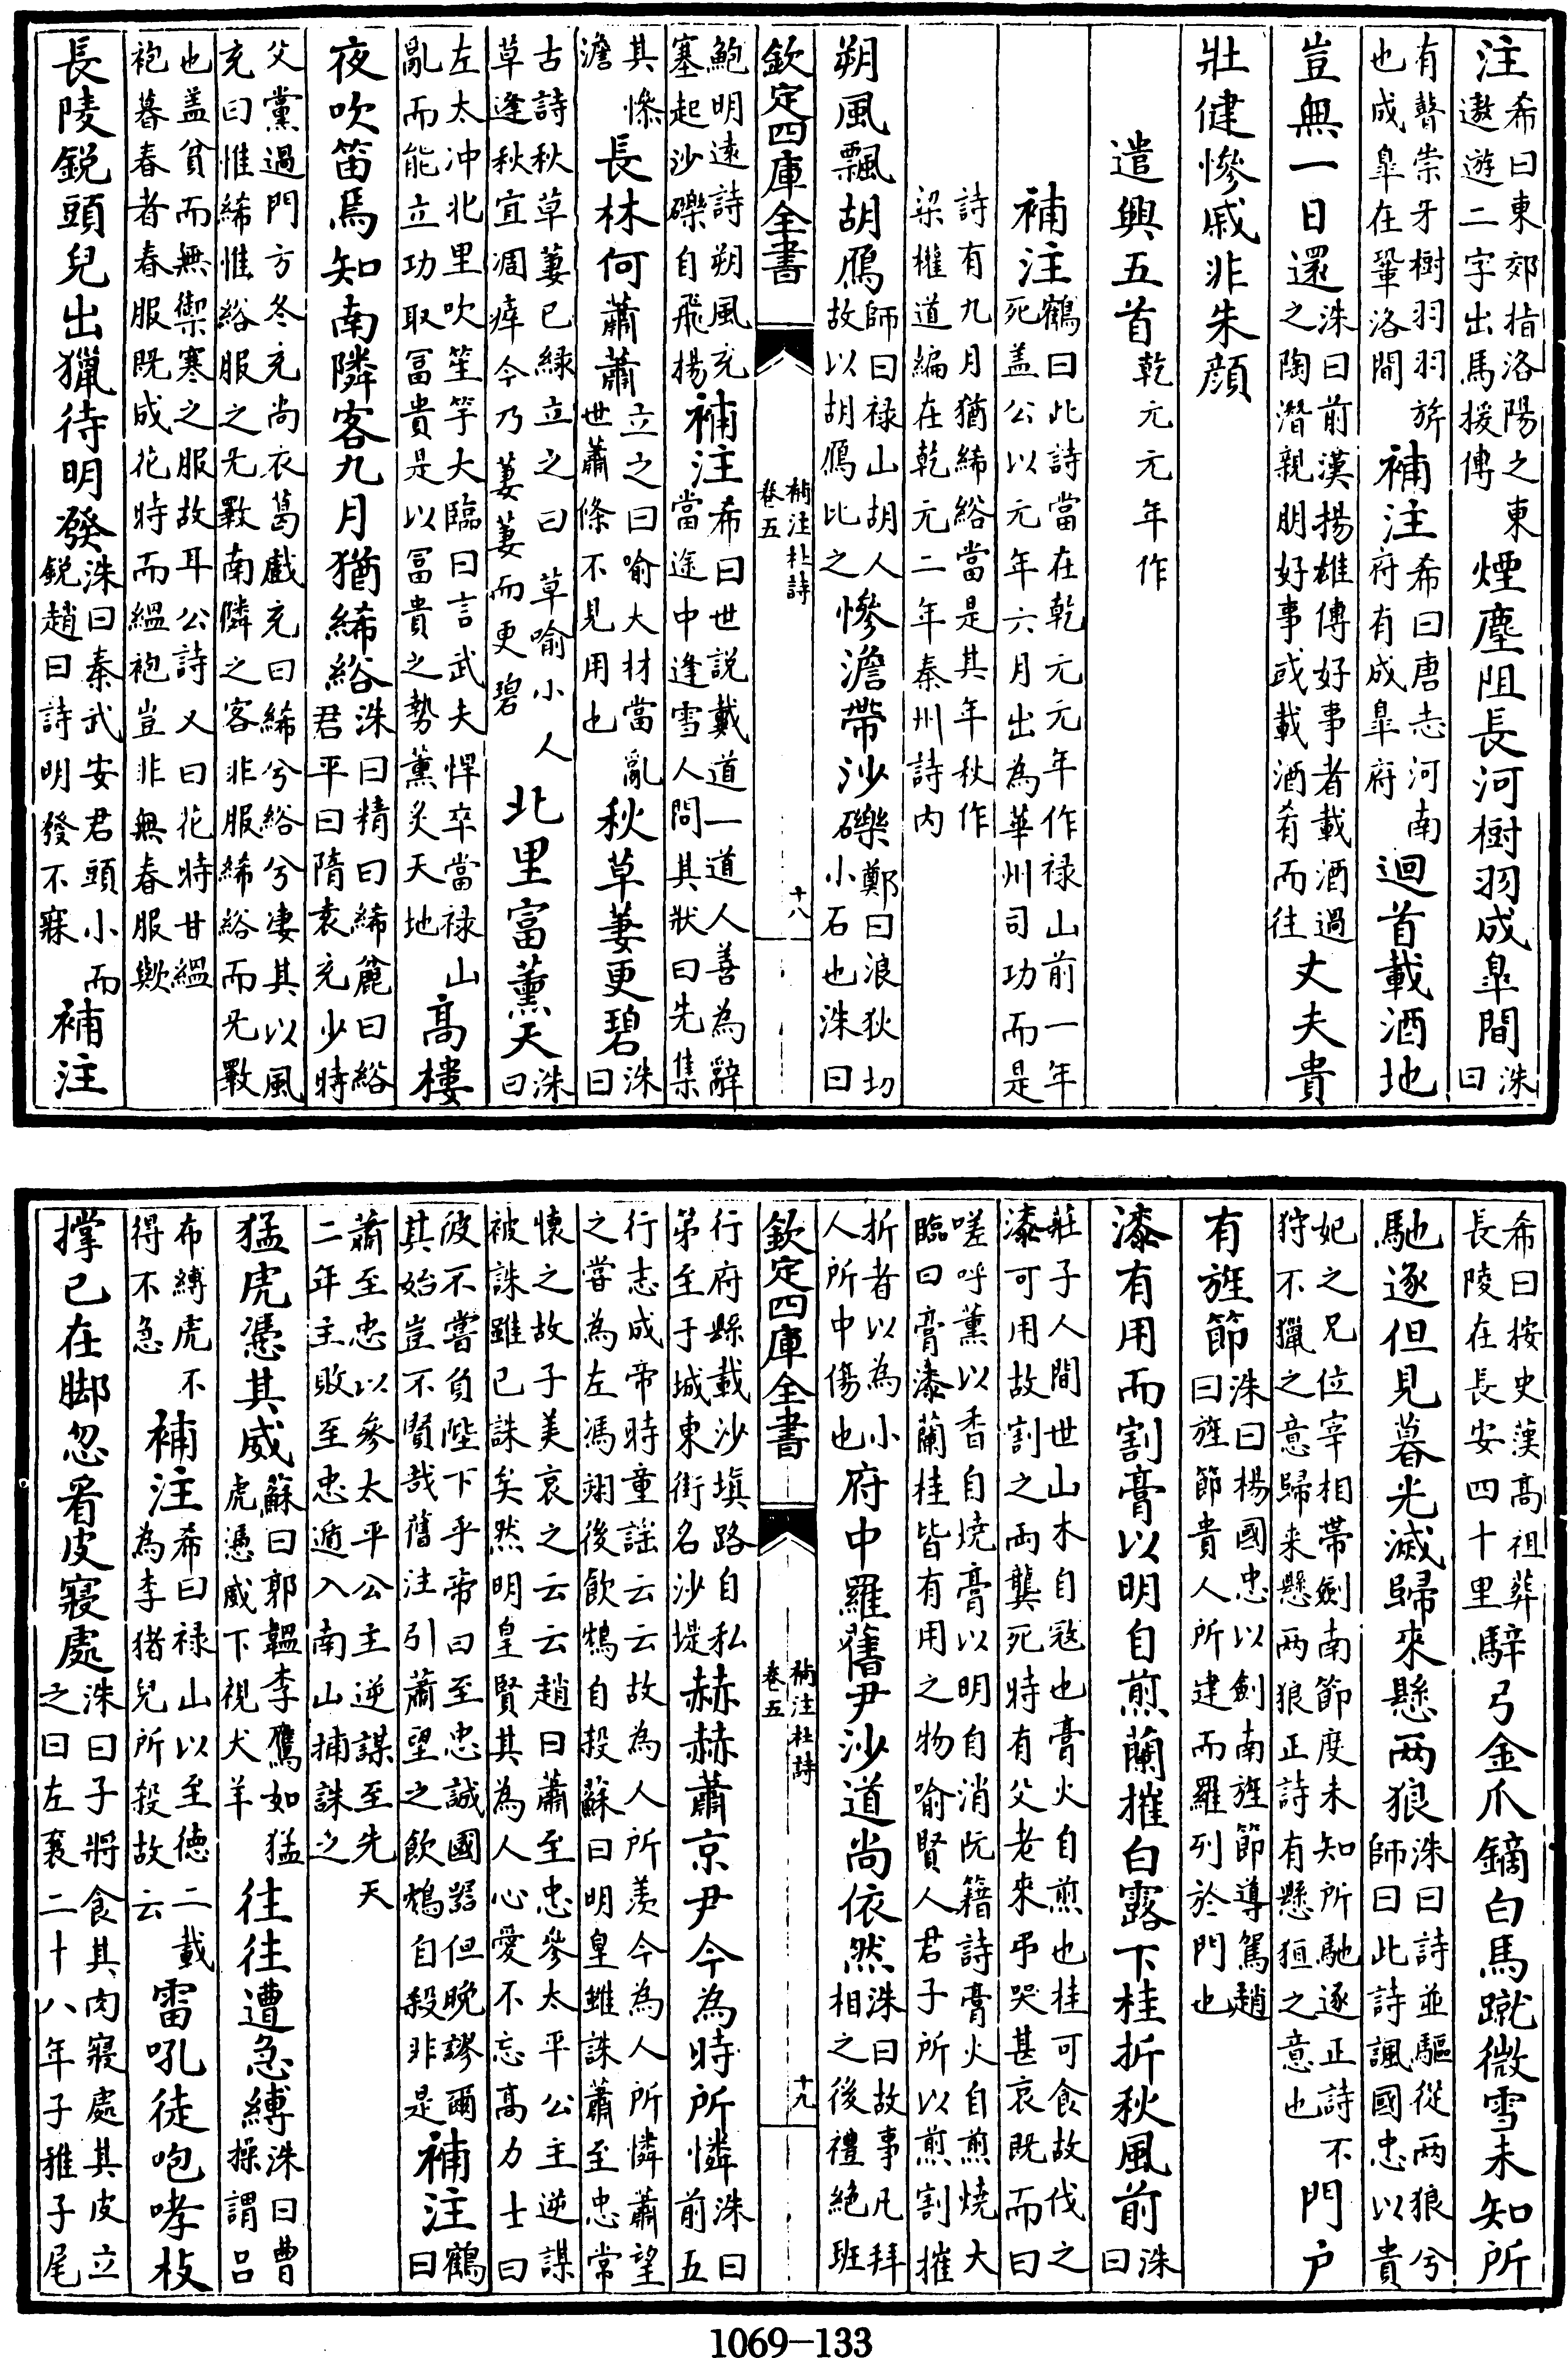 注希曰東郊指洛陽之東遨遊二字出馬援傳煙塵阻長河樹羽成臯間洙曰
有瞽崇牙樹羽羽旂也成臯在鞏洛間補注希曰唐志河南府有成臯府迴首載酒地
豈無一日還洙曰前漢揚雄傳好事者載酒過之陶潛親朋好事或載酒肴而往丈夫貴
壯健慘戚非朱顔
遣興五首乾元元年作
補注鶴曰此詩當在乾元元年作禄山前一年死盖公以元年六月出為華州司功而是
詩有九月猶絺綌當是其年秋作梁權道編在乾元二年秦州詩内
朔風飄胡鴈師曰禄山胡人故以胡鴈比之慘澹帶沙礫鄭曰浪狄切小石也洙曰
欽定四庫全書 補注杜詩卷五 十八
鮑明遠詩朔風充塞起沙礫自飛揚補注希曰世説戴道一道人善為辭當途中逢雪人問其狀曰先集
其慘澹長林何蕭蕭立之曰喻大材當亂世蕭條不見用也秋草萋更碧洙曰
古詩秋草萋已緑立之曰草喻小人草逢秋宜凋瘁今乃萋萋而更碧北里富薰天洙曰
左太冲北里吹笙竽大臨曰言武夫悍卒當禄山亂而能立功取冨貴是以冨貴之勢薰炙天地高樓
夜吹笛焉知南隣客九月猶絺綌洙曰精曰絺麄曰綌君平曰隋袁充少時
父黨過門方冬充尚衣葛戲充曰絺兮綌兮凄其以風充曰惟絺惟綌服之无斁南隣之客非服絺綌而无斁
也盖貧而無禦寒之服故耳公詩又曰花時甘緼袍暮春者春服既成花時而緼袍豈非無春服歟
長陵鋭頭兒出獵待明發洙曰秦武安君頭小而鋭趙曰詩明發不寐補注
希曰按史漢高祖葬長陵在長安四十里騂弓金爪鏑白馬蹴微雪未知所
馳逐但見暮光滅歸來懸两狼洙曰詩並驅從两狼兮師曰此詩諷國忠以貴
妃之兄位宰相帶劍南節度未知所馳逐正詩不狩不獵之意歸来懸两狼正詩有懸狟之意也門户
有旌節洙曰楊國忠以劍南旌節導駕趙曰旌節貴人所建而羅列於門也
漆有用而割膏以明自煎蘭摧白露下桂折秋風前洙曰
莊子人間世山木自寇也膏火自煎也桂可食故伐之漆可用故割之两龔死時有父老來弔哭甚哀既而曰
嗟呼薰以香自燒膏以明自消阮籍詩膏火自煎燒大臨曰膏漆蘭桂皆有用之物喻賢人君子所以煎割摧
折者以為小人所中傷也府中羅舊尹沙道尚依然洙曰故事凡拜相之後禮絶班
欽定四庫全書 補注杜詩卷五 十九
行府縣載沙填路自私第至于城東街名沙堤赫赫蕭京尹今為時所憐洙曰前五
行志成帝時童謡云云故為人所羡今為人所憐蕭望之嘗為左馮翊後飲鴆自殺蘇曰明皇雖誅蕭至忠常
懷之故子美哀之云云趙曰蕭至忠參太平公主逆謀被誅雖已誅矣然明皇賢其為人心愛不忘高力士曰
彼不嘗負陛下乎帝曰至忠誠國器但晚謬爾其始豈不賢哉舊注引蕭望之飲鴆自殺非是補注鶴曰
蕭至忠以參太平公主逆謀至先天二年主敗至忠遁入南山捕誅之
猛虎憑其威蘇曰郭韞李鷹如猛虎憑威下視犬羊往往遭急縛洙曰曹操謂吕
布縛虎不得不急補注希曰禄山以至德二載為李猪兒所殺故云雷吼徒咆哮枝
撑已在脚忽看皮寢處洙曰子將食其肉寢處其皮立之曰左襄二十八年子雅子尾
1069-133